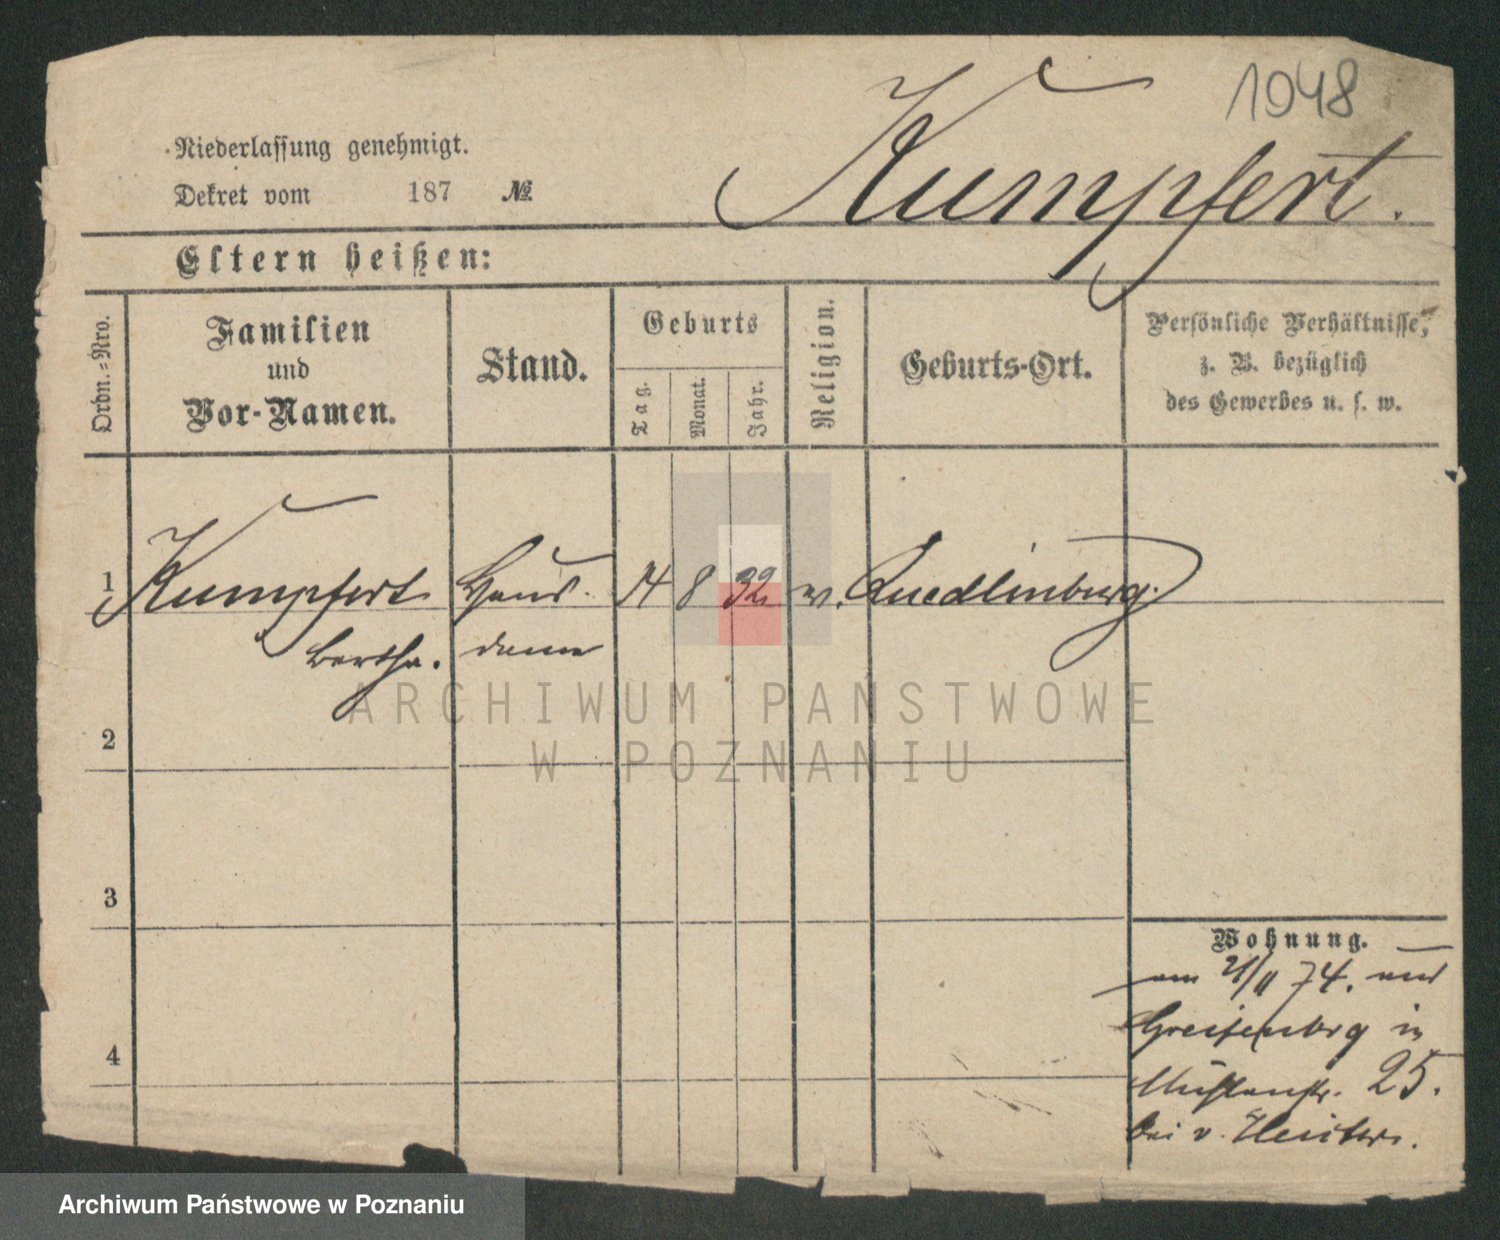 1048
Kumpfert.
Niederlassung genehmigt.
Dekret vom 187 №
Eltern heißen:
Ordn.-Nro.
Familien
und
Vor-Namen.
Stand.
Geburts
Tag.
Monat.
Jahr.
Religion.
Geburts-Ort.
Persönliche Verhältnisse,
z. B. bezüglich
des Gewerbes u. s. w.
1 Kumpfert Haus- 14 8 32 ev. Quedlinburg.
Bertha. dame
2
3
4
Wohnung.
am 21/11 74. aus
Greifenbrg in
Mühlenstr. 25.
bei v.
ARCHIWUM PAŃSTWOWE
W POZNANIU
Archiwum Państwowe w Poznaniu